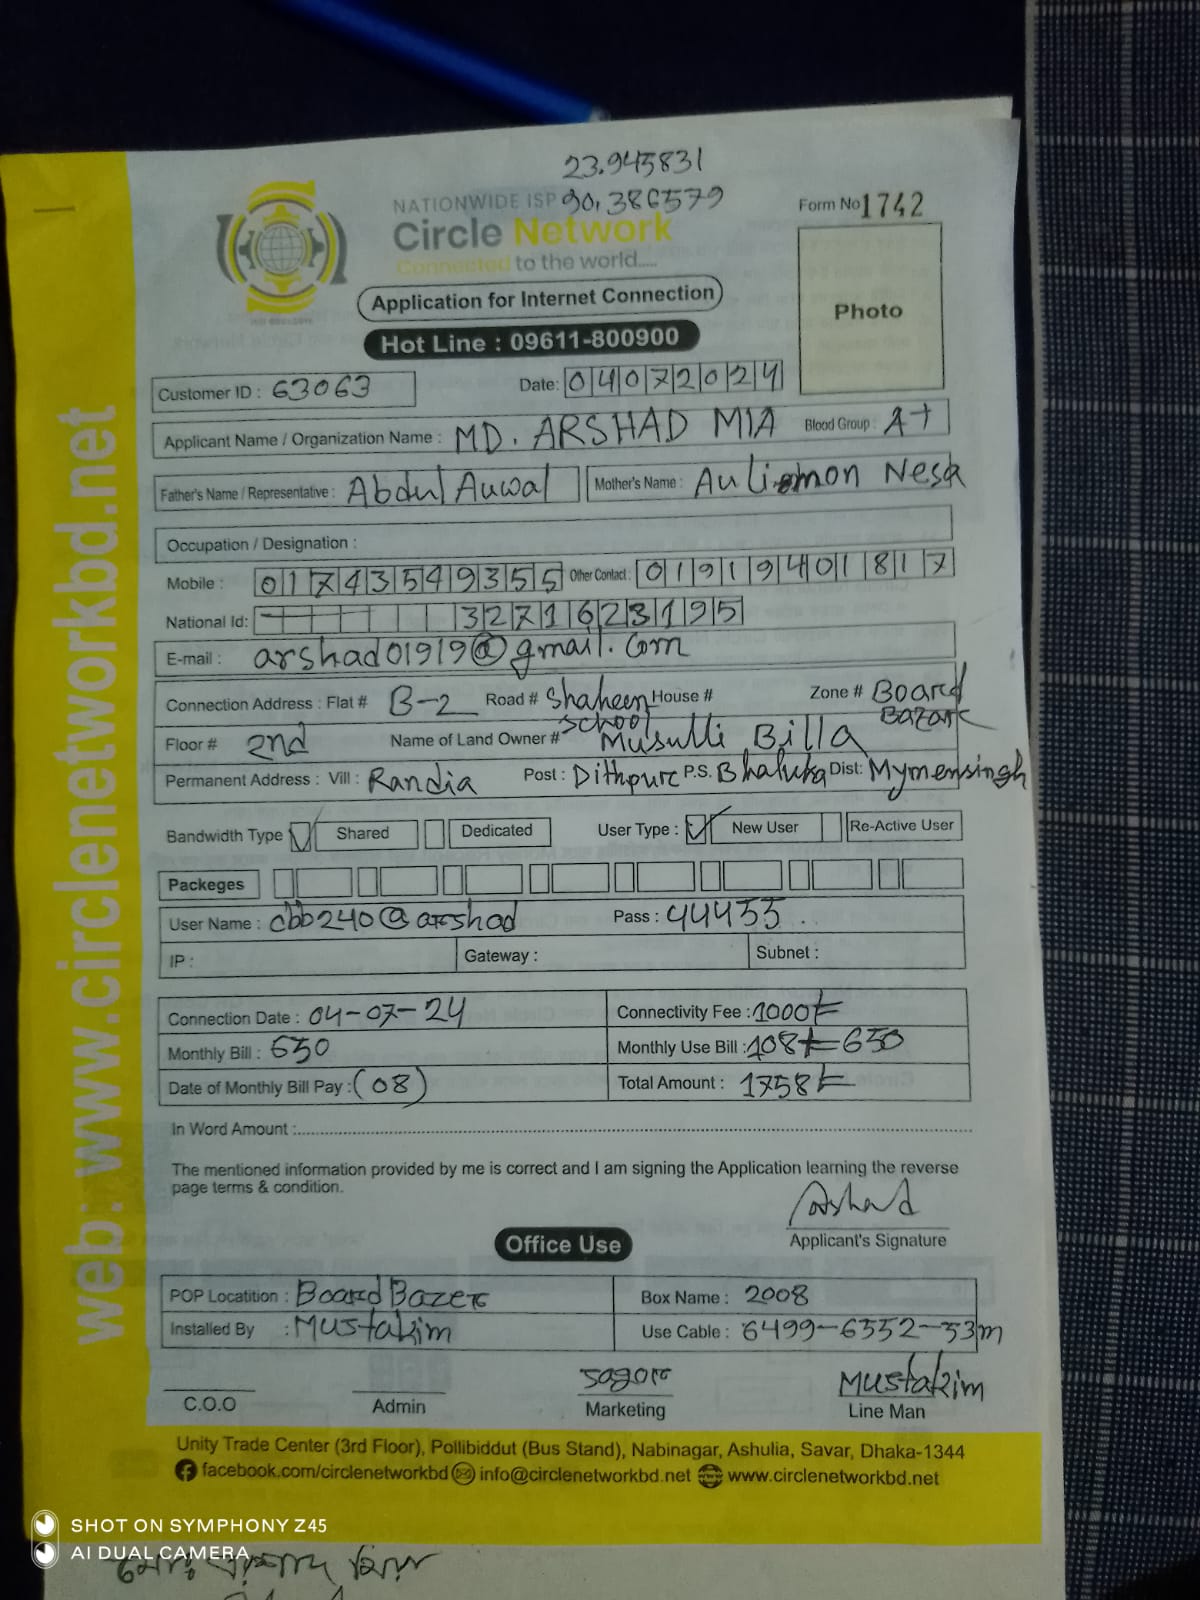 23.945831
NATIONWIDE ISP 90.386579
Form No 1742
Circle Network
Connected to the world.....
Application for Internet Connection
Photo
Hot Line : 09611-800900
Customer ID : 63063 Date: 04072024
Applicant Name / Organization Name : MD. ARSHAD MIA Blood Group : A+
Father's Name / Representative : Abdul Auwal Mother's Name : Nesa
Occupation / Designation :
Mobile : 01743549355 Other Contact : 01919401817
National Id: 3271623195
E-mail : arshad01919@gmail.com
Connection Address : Flat # B-2 Road # Shaheen School House # Zone # Board Bazar
Floor # 2nd Name of Land Owner # Musulli Billa
Permanent Address : Vill : Randia Post : Dithpur P.S. Bhaluka Dist: Mymensingh
Bandwidth Type Shared Dedicated User Type : New User Re-Active User
Packeges
User Name : cbb240@arshad Pass : 44455
IP : Gateway : Subnet :
Connection Date : 04-07-24 Connectivity Fee : 1000/=
Monthly Bill : 650 Monthly Use Bill : 108/= 650
Date of Monthly Bill Pay : (08) Total Amount : 1758/=
In Word Amount :
The mentioned information provided by me is correct and I am signing the Application learning the reverse
page terms & condition.
Arshad
Applicant's Signature
Office Use
POP Locatition : Board Bazer Box Name : 2008
Installed By : Mustakim Use Cable : 6499-6552-53m
Sagor Mustakim
C.O.O Admin Marketing Line Man
Unity Trade Center (3rd Floor), Pollibiddut (Bus Stand), Nabinagar, Ashulia, Savar, Dhaka-1344
facebook.com/circlenetworkbd info@circlenetworkbd.net www.circlenetworkbd.net
web: www.circlenetworkbd.net
SHOT ON SYMPHONY Z45
AI DUAL CAMERA